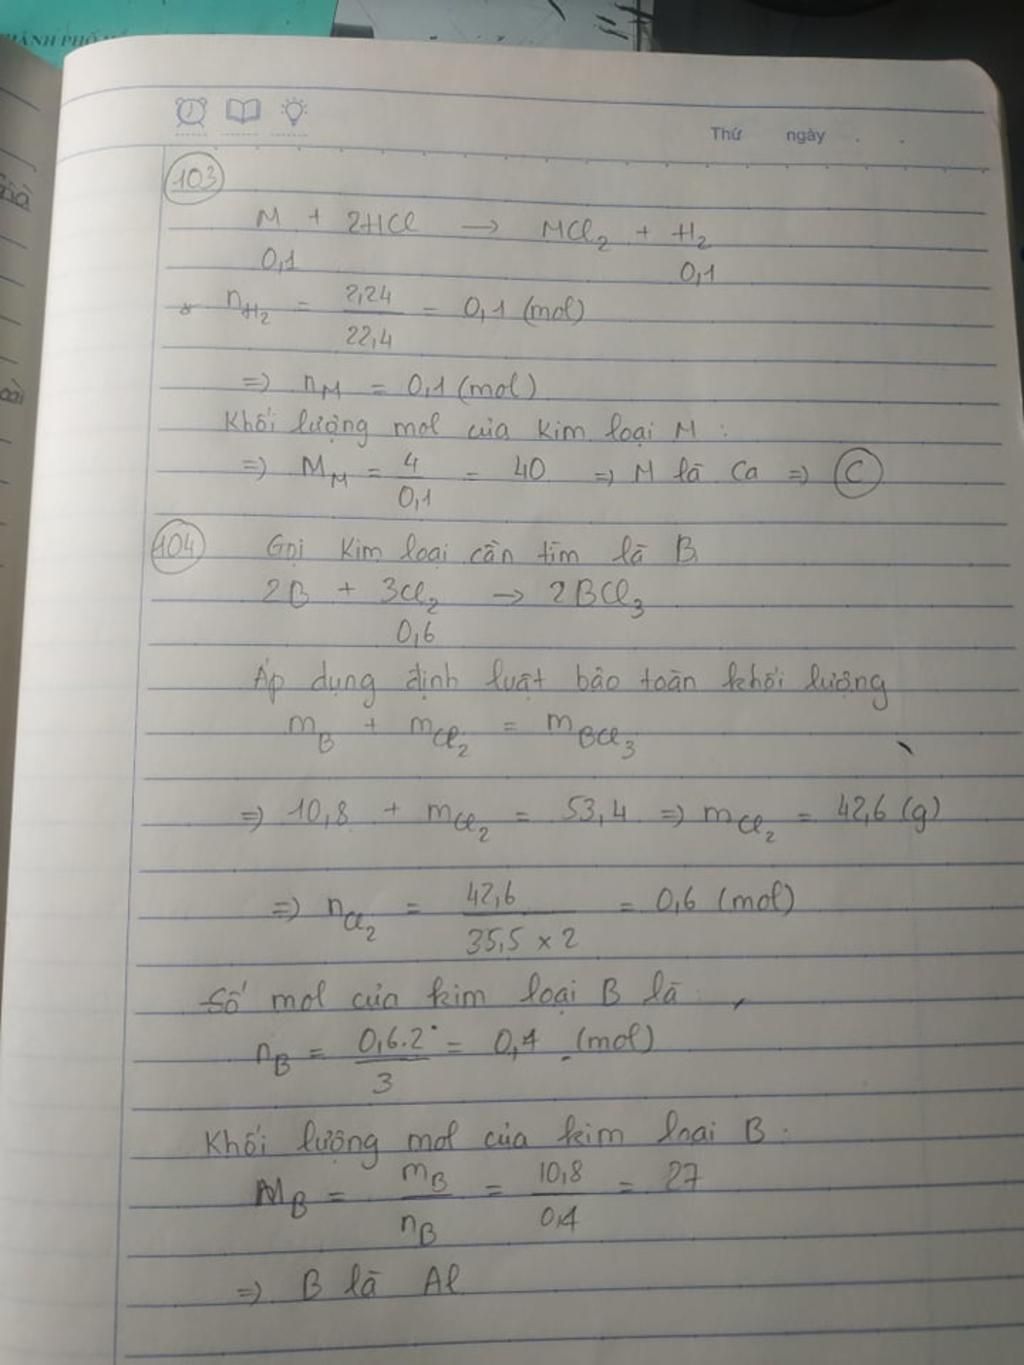 HÀNH PHỐ
Thứ ngày
103
M + 2HCl → MCl₂ + H₂
0,1 0,1
* n_H₂ = 2,24/22,4 = 0,1 (mol)
=> n_M = 0,1 (mol)
Khối lượng mol của kim loại M :
=> M_M = 4/0,1 = 40 => M là Ca => C
104 Gọi kim loại cần tìm là B
2B + 3Cl₂ → 2BCl₃
0,6
Áp dụng định luật bảo toàn khối lượng
m_B + m_Cl₂ = m_BCl₃
=> 10,8 + m_Cl₂ = 53,4 => m_Cl₂ = 42,6 (g)
=> n_Cl₂ = 42,6/35,5 × 2 = 0,6 (mol)
Số mol của kim loại B là
n_B = 0,6.2/3 = 0,4 (mol)
Khối lượng mol của kim loại B :
M_B = m_B/n_B = 10,8/0,4 = 27
=> B là Al